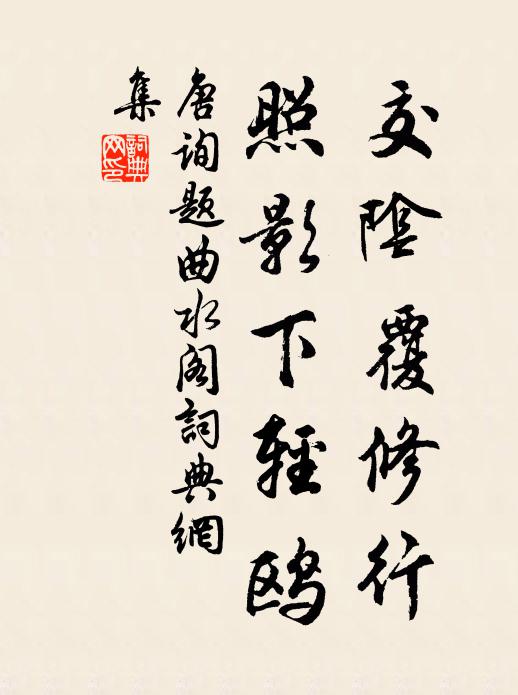 交陰覆修行
照影下輕鷗
唐詢題曲水阁詞典網
集
詞典网印